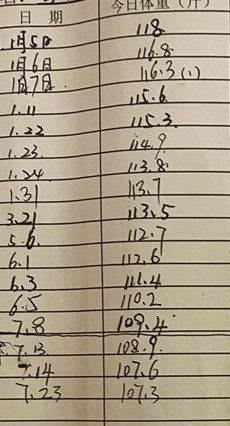 日 期 今日体重（斤）
1月5日 118
1月6日 116.8
1月7日 116.3 (1)
1.11 115.6
1.22 115.3
1.23 114.9
1.24 113.8
1.31 113.7
3.21 113.5
5.6 112.7
6.1 112.6
6.3 111.4
6.5 110.2
7.8 109.4
7.13 108.9
7.14 107.6
7.23 107.3